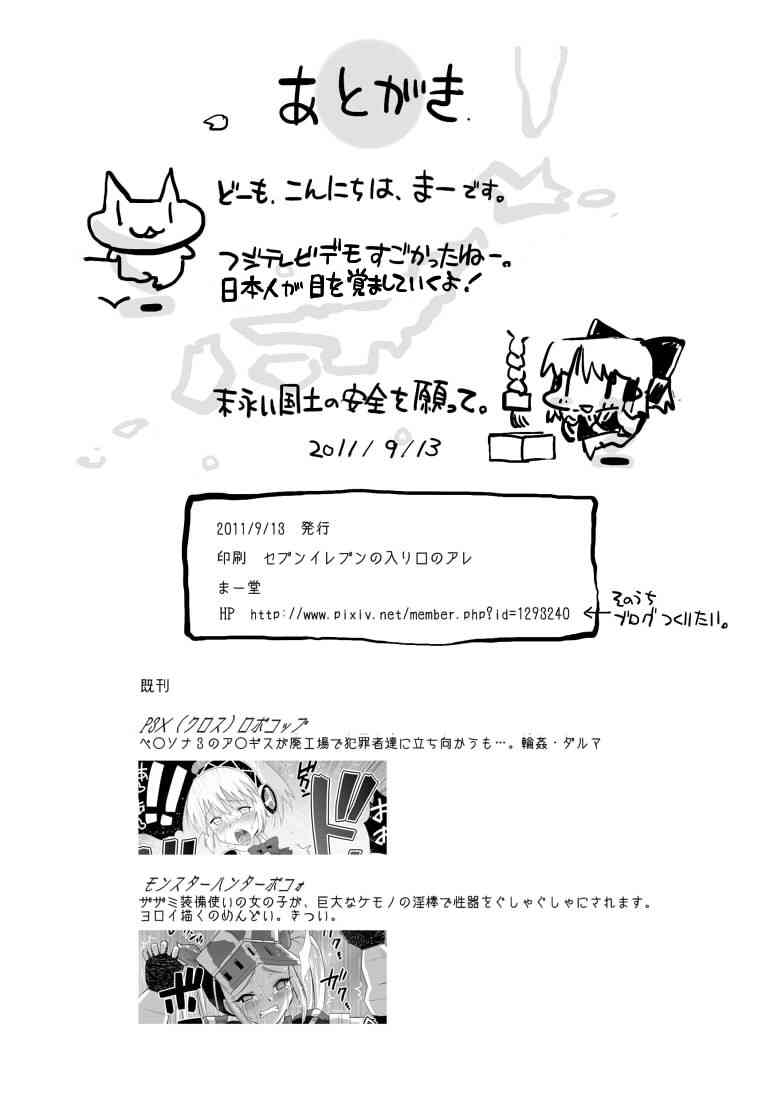 あとがき
どーも、こんにちは、まーです。
フジテレビデモすごかったねー。
日本人が目を覚ましていくよ！
末永い国土の安全を願って。
2011/9/13
2011/9/13 発行
印刷 セブンイレブンの入り口のアレ
まー堂
HP http://www.pixiv.net/member.php?id=1293240
そのうち
ブログつくりたい。
既刊
P3X（クロス）ロボコップ
ペ〇ソナ3のア〇ギスが廃工場で犯罪者達に立ち向かうも…。輪姦・ダルマ
モンスターハンターポコォ
ザザミ装備使いの女の子が、巨大なケモノの淫棒で性器をぐしゃぐしゃにされます。
ヨロイ描くのめんどい。きつい。